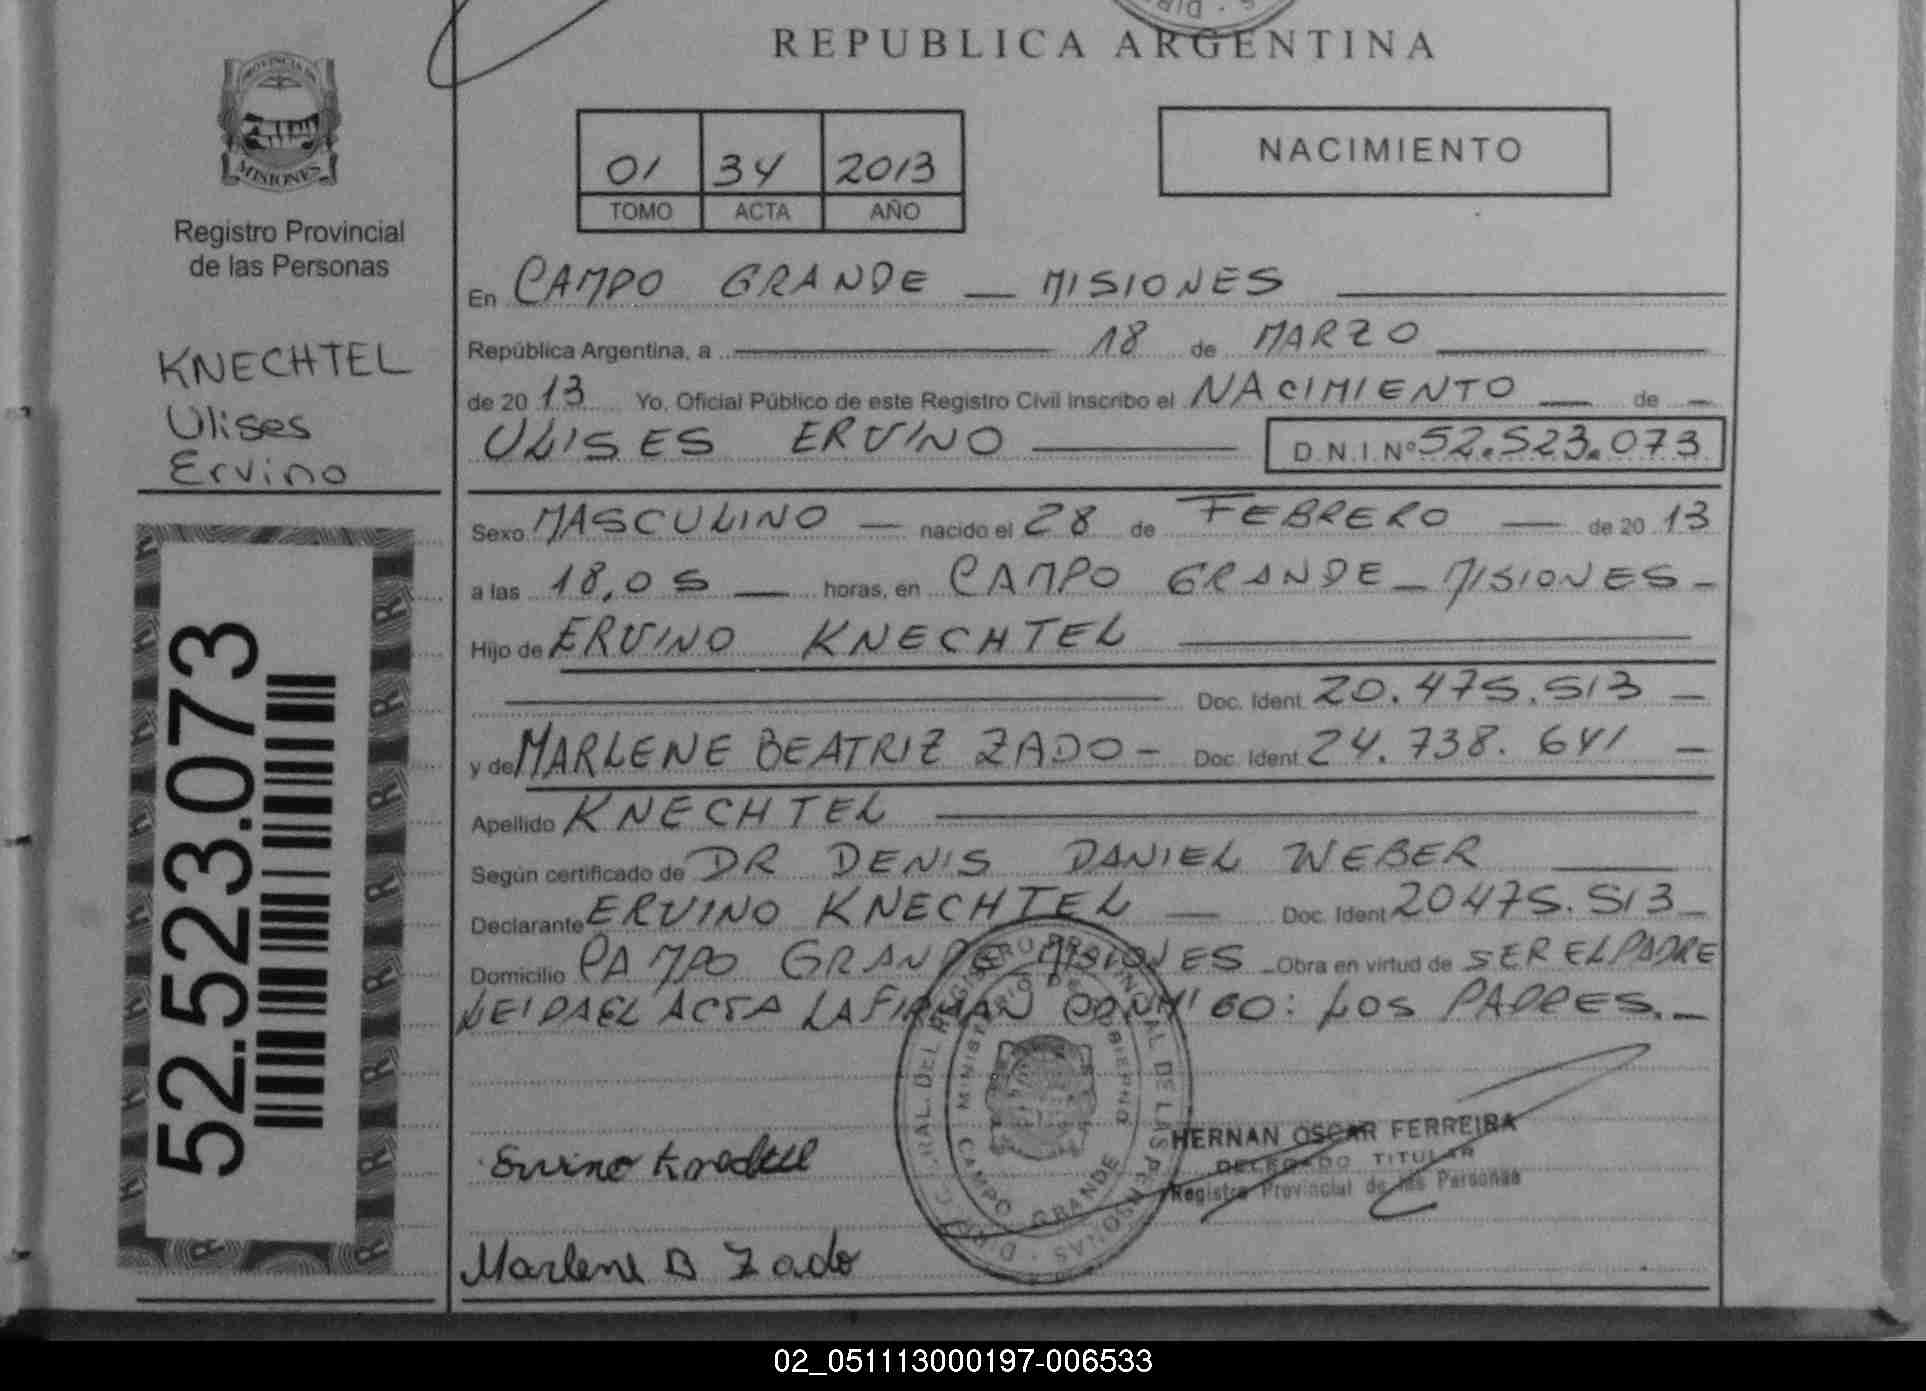 REPUBLICA ARGENTINA
PROVINCIA DE
MISIONES
Registro Provincial
de las Personas
KNECHTEL
Ulises
Ervino
52.523.073
01 34 2013
TOMO ACTA AÑO
NACIMIENTO
En CAMPO GRANDE — MISIONES
República Argentina, a 18 de MARZO
de 20 13 Yo, Oficial Público de este Registro Civil Inscribo el NACIMIENTO — de —
ULISES ERVINO D.N.I.Nº 52.523.073
Sexo MASCULINO — nacido el 28 de FEBRERO — de 20 13
a las 18,05 — horas, en CAMPO GRANDE — MISIONES —
Hijo de ERVINO KNECHTEL
Doc. Ident. 20.475.513 —
y de MARLENE BEATRIZ ZADO — Doc. Ident. 24.738.641 —
Apellido KNECHTEL
Según certificado de DR DENIS DANIEL WEBER
Declarante ERVINO KNECHTEL — Doc. Ident. 20475.513 —
Domicilio CAMPO GRANDE MISIONES — Obra en virtud de SER EL PADRE
LEIDA EL ACTA LA FIRMAN CONMIGO: LOS PADRES. —
DIREC. GRAL. DEL REGISTRO PROVINCIAL DE LAS PERSONAS
MINISTERIO DE GOBIERNO
CAMPO GRANDE
HERNAN OSCAR FERREIRA
DELEGADO TITULAR
Registro Provincial de las Personas
Ervino Knechtel
Marlene B Zado
02_051113000197-006533